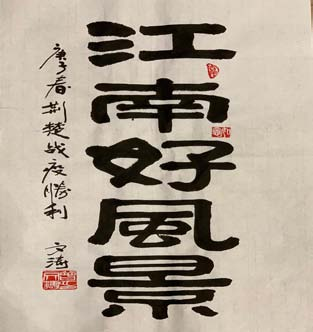 江南好風景
庚子春荆楚战疫勝利
文涛